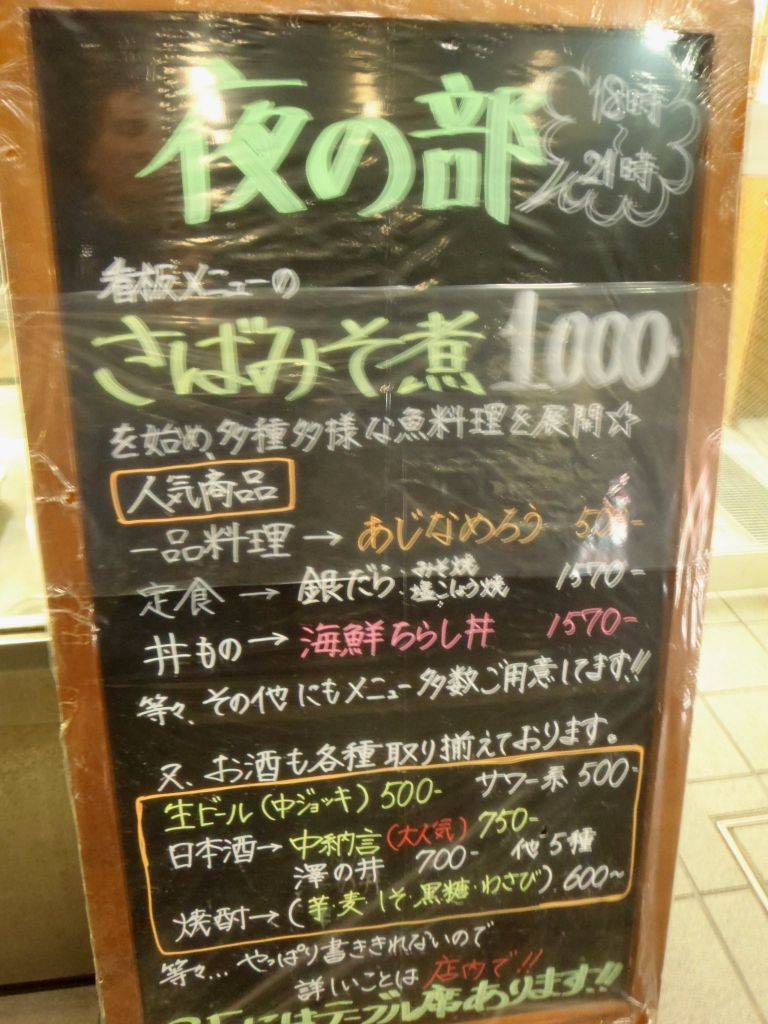 夜の部
18時
〜
21時
看板メニューの
さばみそ煮 1000
を始め、多種多様な魚料理を展開☆
人気商品
一品料理 → あじなめろう
定食 → 銀だら・みそ焼・塩こしょう焼 1570-
丼もの → 海鮮ちらし丼 1570-
等々、その他にもメニュー多数ご用意してます!!
又、お酒も各種取り揃えております。
生ビール(中ジョッキ)500- サワー系 500-
日本酒→中納言(大人気)750-
澤の井 700- 他5種
焼酎→(芋・麦・しそ・黒糖・わさび)600〜
等々… やっぱり書ききれないので
詳しいことは店内で!!
にはテーブル席あります!!